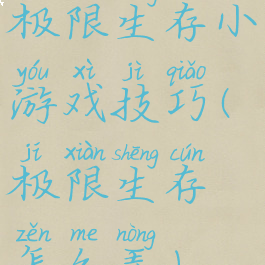 极限生存小
yóu xì jì qiǎo
游戏技巧(
jí xiàn shēng cún
极限生存
zěn me nòng
怎么弄)